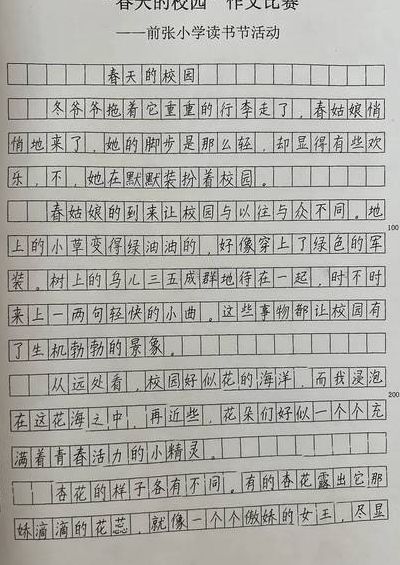 春天的校园 作文比赛
——前张小学读书节活动
春天的校园
冬爷爷拖着它重重的行李走了，春姑娘悄
悄地来了，她的脚步是那么轻，却显得有些欢
乐，不，她在默默装扮着校园。
春姑娘的到来让校园与以往与众不同。地
上的小草变得绿油油的，好像穿上了绿色的军
100
装。树上的鸟儿三五成群地待在一起，时不时
来上一两句轻快的小曲。这些事物都让校园有
了生机勃勃的景象。
从远处看，校园好似花的海洋，而我浸泡
200
在这花海之中，再近些，花朵们好似一个个充
满着青春活力的小精灵。
杏花的样子各有不同。有的杏花露出它那
娇滴滴的花蕊，就像一个个傲娇的女王，尽显